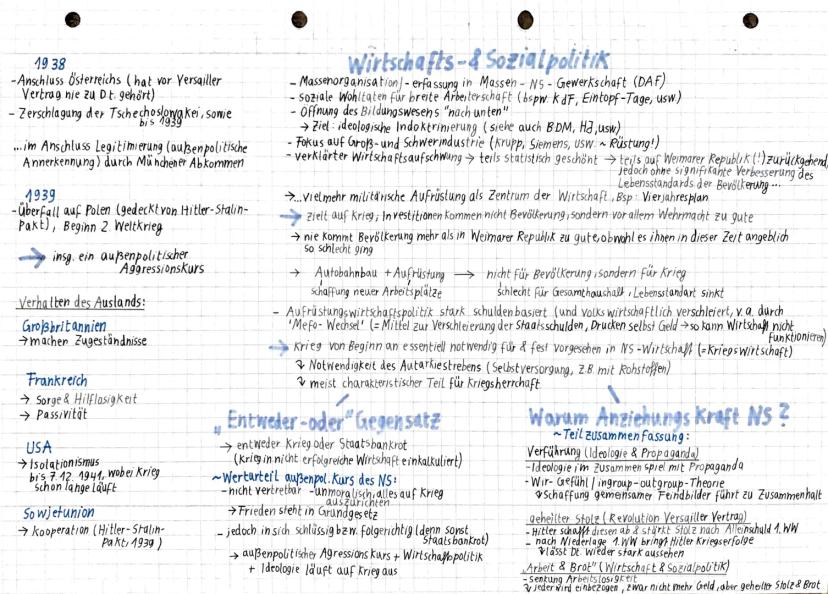 1938
-Anschluss Österreichs (hat vor Versailler
Vertrag nie zu Dt. gehört)
- Zerschlagung der Tschechoslowakei, sowie
bis 1939
...im Anschluss Legitimierung (außenpolitische
Annerkennung) durch Münchener Abkommen
1939
-Überfall auf Polen (gedeckt von Hitler-Stalin-
Pakt), Beginn 2. Weltkrieg
→ insg. ein außenpolitischer
Aggressionskurs
Verhalten des Auslands:
Großbritannien
→ machen Zugeständnisse
Frankreich
→ Sorge & Hilflosigkeit
→ Passivität
USA
→ Isolationismus
bis 7.12.1941, wobei Krieg
schon lange läuft
Sowjetunion
→ Kooperation (Hitler-Stalin-
Pakt; 1939)
Wirtschafts-& Sozialpolitik
- Massenorganisation/-erfassung in Massen-NS-Gewerkschaft (DAF)
- soziale Wohltaten für breite Arbeiterschaft (bspw. KdF, Eintopf-Tage, usw.)
- Öffnung des Bildungswesens "nach unten"
→ Ziel: ideologische Indoktrinierung (siehe auch BDM, HJ, usw.)
- Fokus auf Groß- und Schwerindustrie (Krupp, Siemens, usw. ~ Rüstung!)
- verklärter Wirtschaftsaufschwung → teils statistisch geschönt → teils auf Weimarer Republik (!) zurückgehend,
jedoch ohne signifikante Verbesserung des
Lebensstandards der Bevölkerung...
→...vielmehr militärische Aufrüstung als Zentrum der Wirtschaft, Bsp: Vierjahresplan
→ zielt auf Krieg, Investitionen kommen nicht Bevölkerung, sondern vor allem Wehrmacht zu gute
→ nie kommt Bevölkerung mehr als in Weimarer Republik zu gute, obwohl es ihnen in dieser Zeit angeblich
so schlecht ging
→ Autobahnbau + Aufrüstung → nicht für Bevölkerung, sondern für Krieg
schaffung neuer Arbeitsplätze schlecht für Gesamthaushalt, Lebensstandart sinkt
- Aufrüstungswirtschaftspolitik stark schuldenbasiert (und volkswirtschaftlich verschleiert, v.a. durch
'Mefo-Wechsel' (=Mittel zur Verschleierung der Staatsschulden, Drucken selbst Geld → so kann Wirtschaft nicht
funktionieren)
→ Krieg von Beginn an essentiell notwendig für & fest vorgesehen in NS-Wirtschaft (=Kriegswirtschaft)
↳ Notwendigkeit des Autarkiestrebens (Selbstversorgung, z.B. mit Rohstoffen)
↳ meist charakteristischer Teil für Kriegsherrchaft
„Entweder-oder" Gegensatz
→ entweder Krieg oder Staatsbankrot
(Krieg in nicht erfolgreiche Wirtschaft einkalkuliert)
~Werturteil außenpol. Kurs des NS:
-nicht vertretbar - unmoralisch, alles auf Krieg
auszurichten
→ Frieden steht in Grundgesetz
- jedoch in sich schlüssig bzw. folgerichtig (denn sonst
Staatsbankrot)
→ außenpolitischer Agressionskurs + Wirtschaftspolitik
+ Ideologie läuft auf Krieg aus
Warum Anziehungskraft NS?
~Teilzusammenfassung:
Verführung (Ideologie & Propaganda)
-Ideologie im Zusammenspiel mit Propaganda
-Wir-Gefühl / ingroup-outgroup-Theorie
↳ Schaffung gemeinsamer Feindbilder führt zu Zusammenhalt
geheilter Stolz (Revolution Versailler Vertrag)
-Hitler schafft diesen ab & stärkt Stolz nach Alleinschuld 1.WW
- nach Niederlage 1.WW bringt Hitler Kriegserfolge
↳ lässt Dt. wieder stark aussehen
„Arbeit & Brot" (Wirtschaft & Sozialpolitik)
- Senkung Arbeitslosigkeit
↳ jeder wird einbezogen, zwar nicht mehr Geld, aber geheilter Stolz & Brot